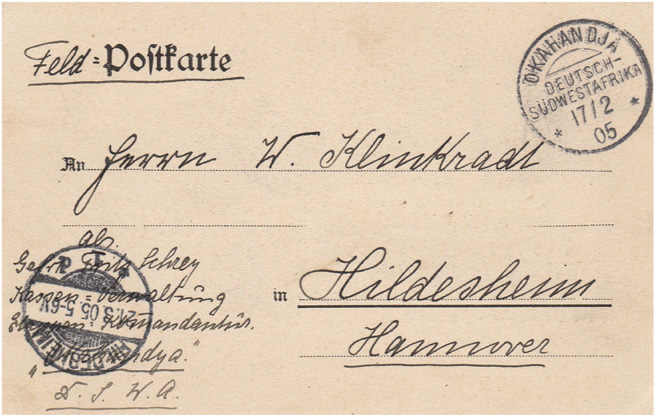 Feld-Postkarte
OKAHANDJA
DEUTSCH-
SÜDWESTAFRIKA
17/2
05
An Herrn W. Klinkradt
in Hildesheim
Hannover
abs.
Gefr. Fritz Schrey
Kassen-Verwaltung
Etappen-Komandantur.
D. S. W. A.
HILDESHEIM
21.3.05.5-6V.